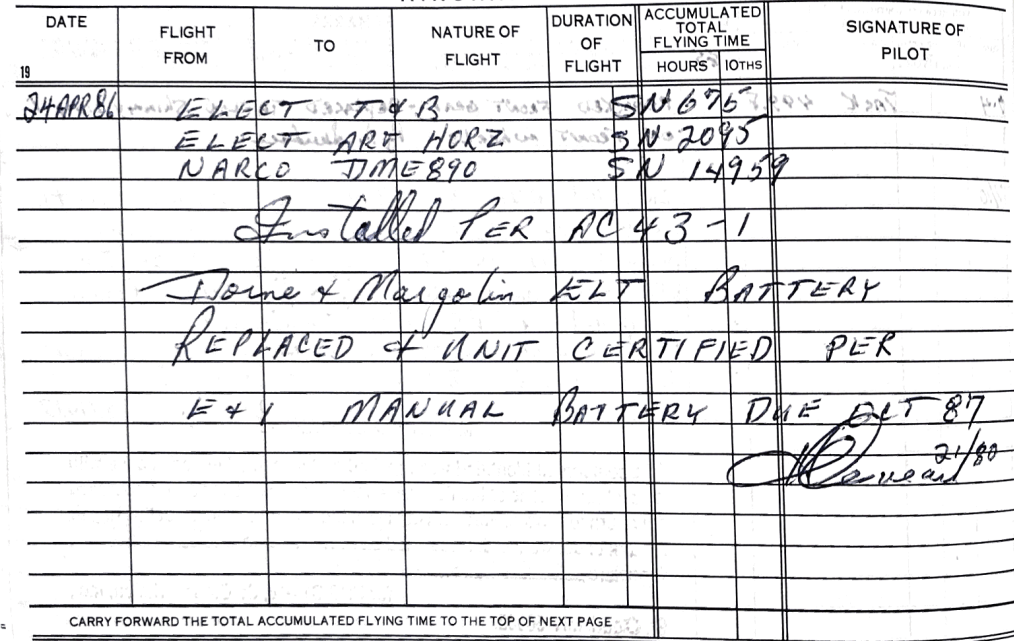 DATE
19
FLIGHT FROM
TO
NATURE OF FLIGHT
DURATION OF FLIGHT
ACCUMULATED TOTAL FLYING TIME
HOURS 10THS
SIGNATURE OF PILOT
24 APR 86 ELECT T & B SN 675
ELECT ART HORZ SN 2095
NARCO DME 890 SN 14959
Installed PER AC 43-1
Dorne & Margolin ELT BATTERY
REPLACED & UNIT CERTIFIED PER
E & I MANUAL BATTERY DUE OCT 87
21/80
CARRY FORWARD THE TOTAL ACCUMULATED FLYING TIME TO THE TOP OF NEXT PAGE